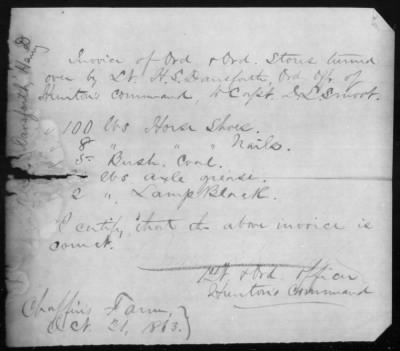 Invoice of Ord & Ord. Stores turned
over by Lt. H. S. Danforth, Ord. Off. of
Hunton's Command, to Capt. D. L. Smoot.
100 lbs Horse Shoes.
8 " " Nails.
5 Bush. Coal.
lbs axle grease.
2 ". Lamp Black.
I certify that the above invoice is
correct.
Lt. & Ord. Officer
Hunton's Command
Chaffin's Farm,
Oct. 21, 1863.